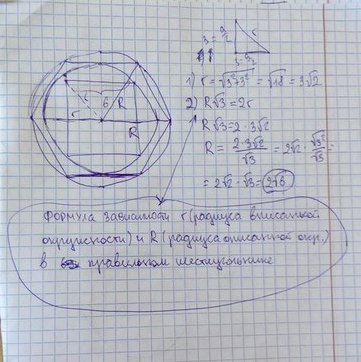 3 = a/2
r
3 = a/2
1) r = √3²+3² = √18 = 3√2
2) R√3 = 2r
r 6 R
r
R
R√3 = 2·3√2
R = 2·3√2/√3 = 2√2·√3²/√3 =
= 2√2·√3 = 2√6
формула зависимости r (радиуса вписанной
окружности) и R (радиуса описанной окр.)
в правильном шестиугольнике